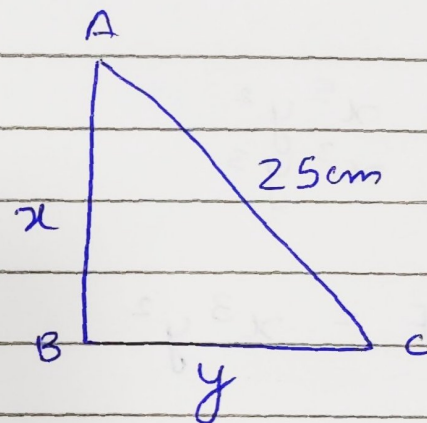 A
25cm
x
B
C
y